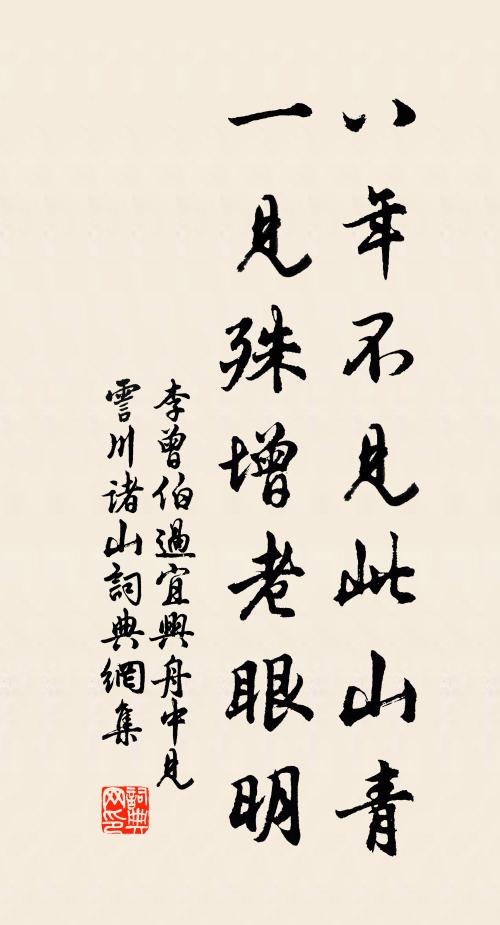 八年不見此山青
一見殊增老眼明
李曾伯過宜興舟中見
霅川诸山詞典網集
詞典
网印